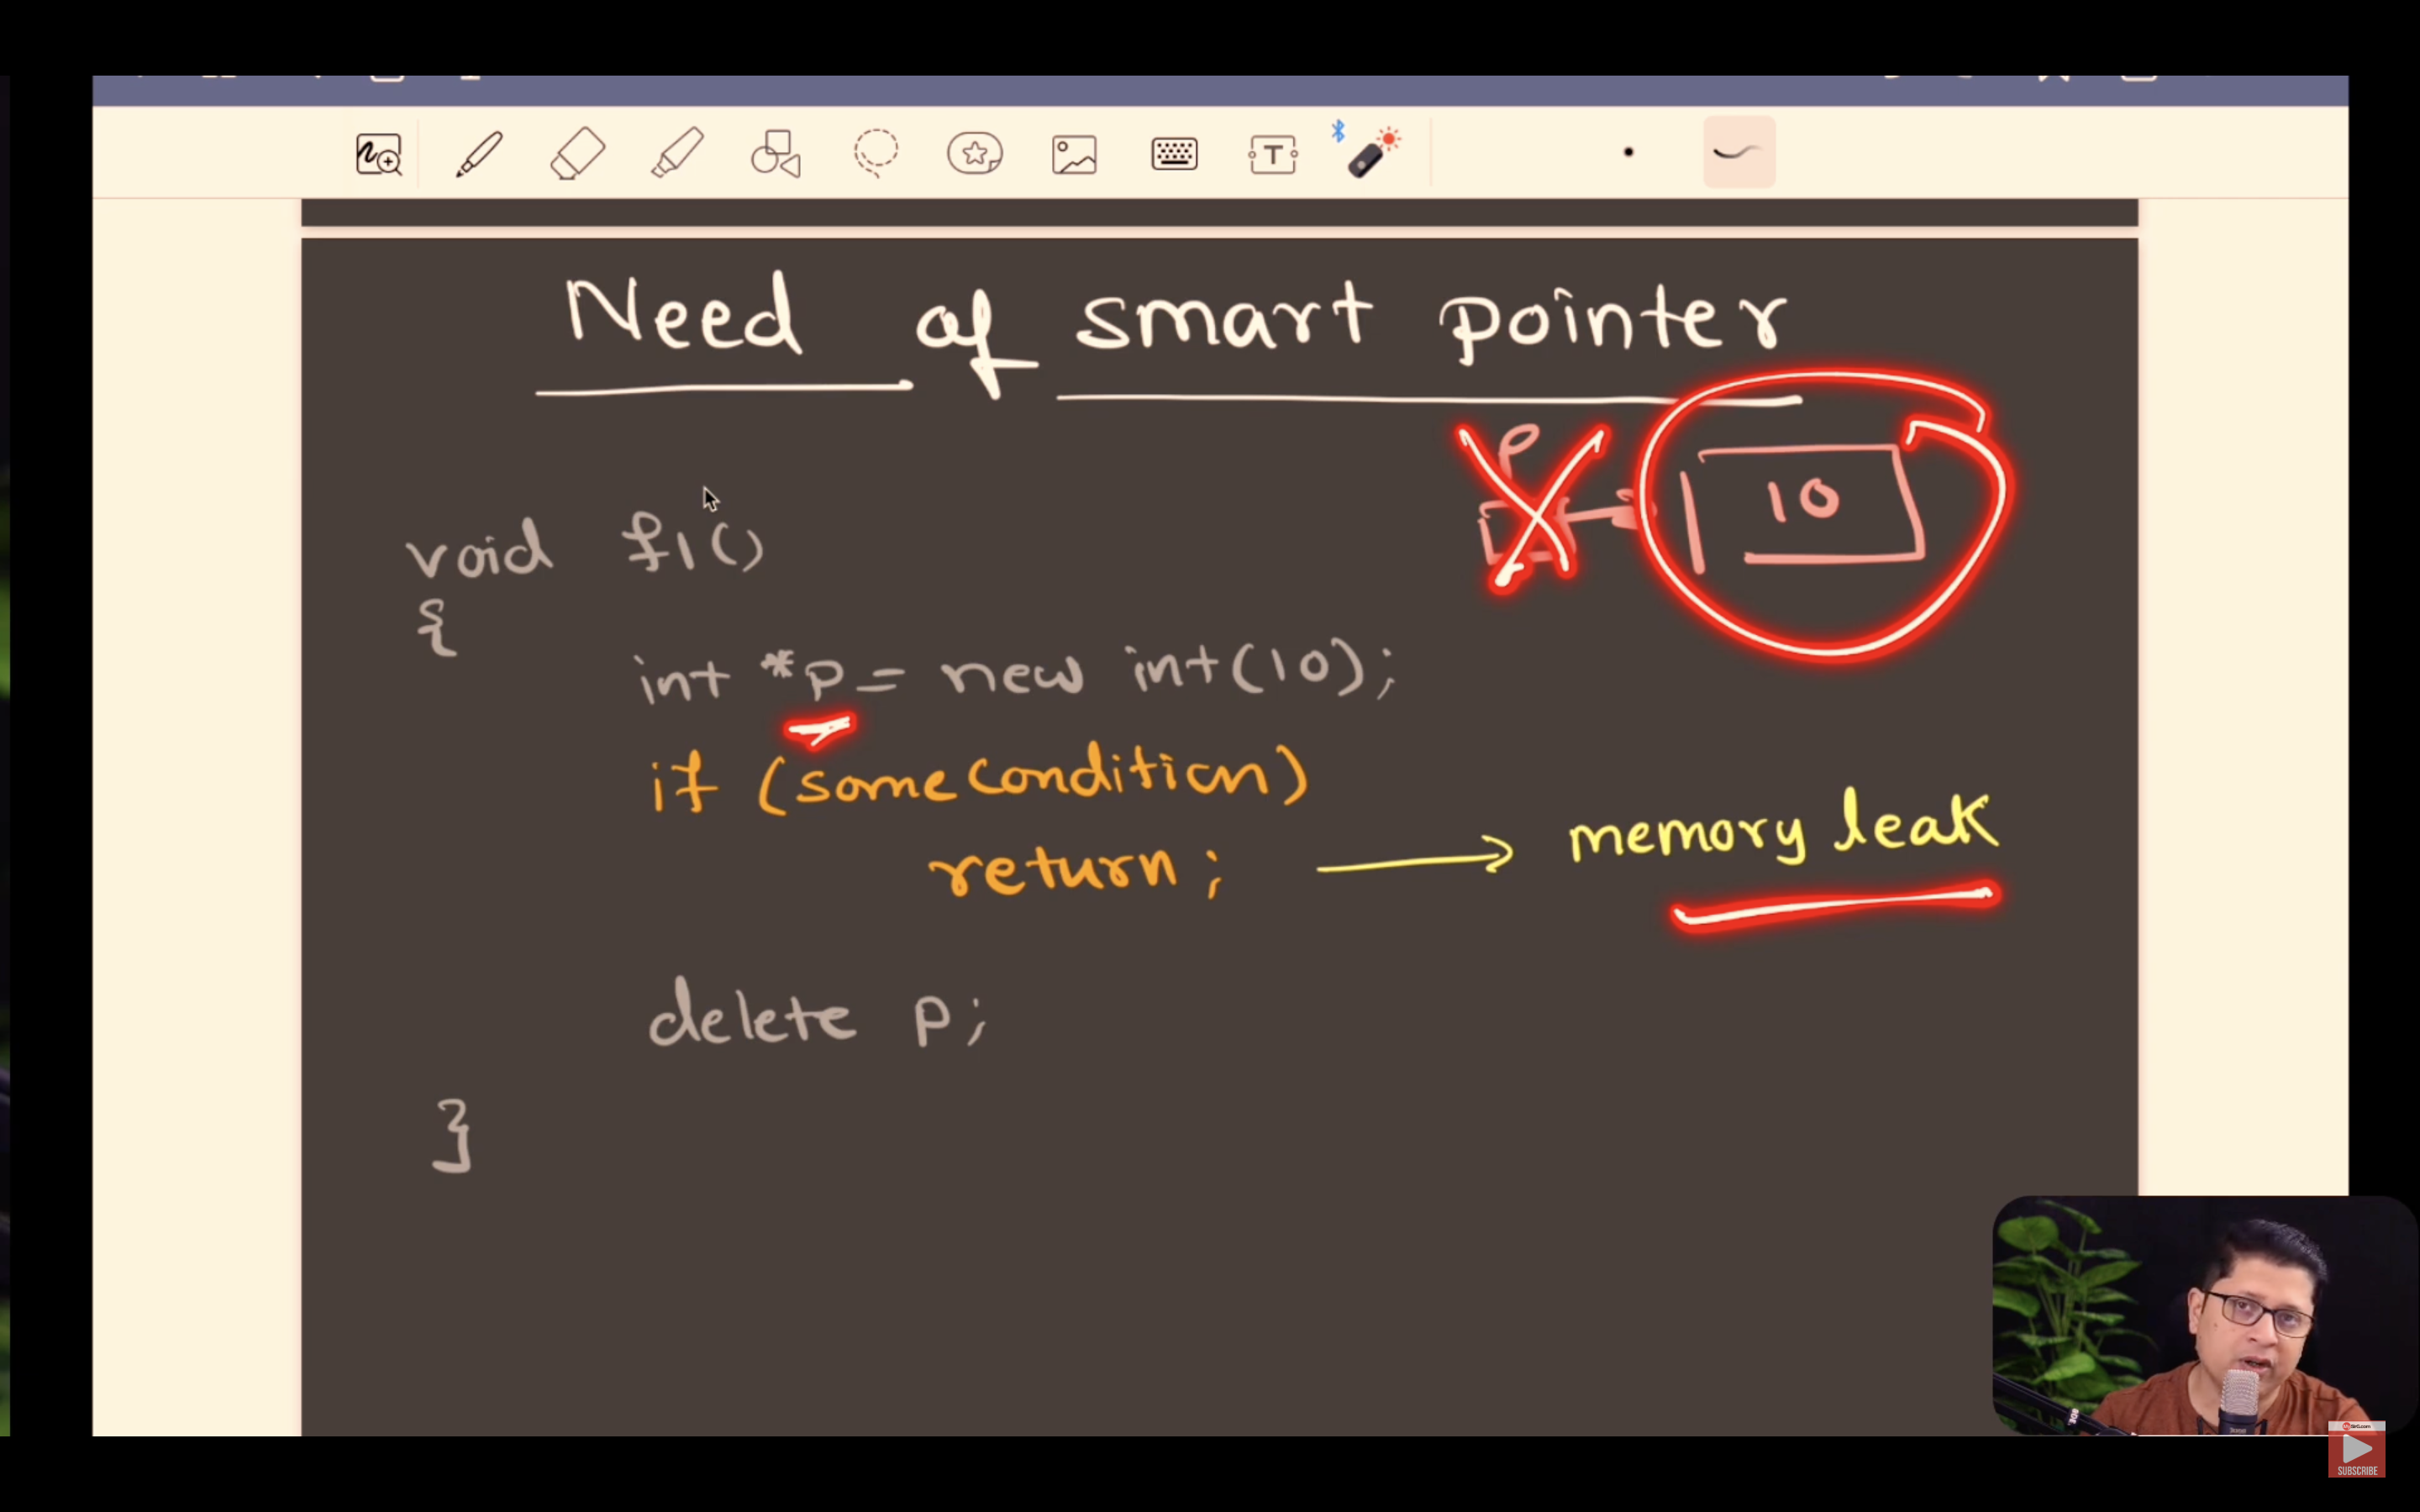 Need of smart pointer
p
10
void f1()
{
int *p = new int(10);
if (some condition)
return; → memory leak
delete p;
}
SUBSCRIBE